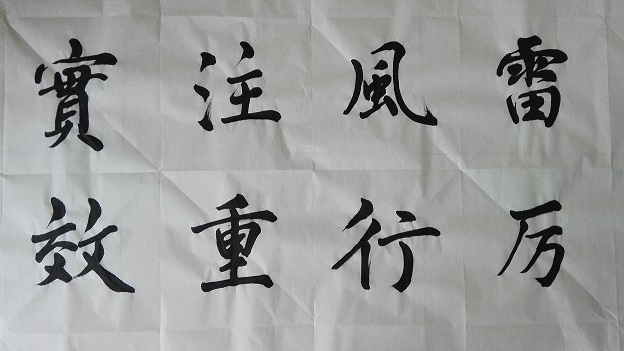 雷厉
風行
注重
實效